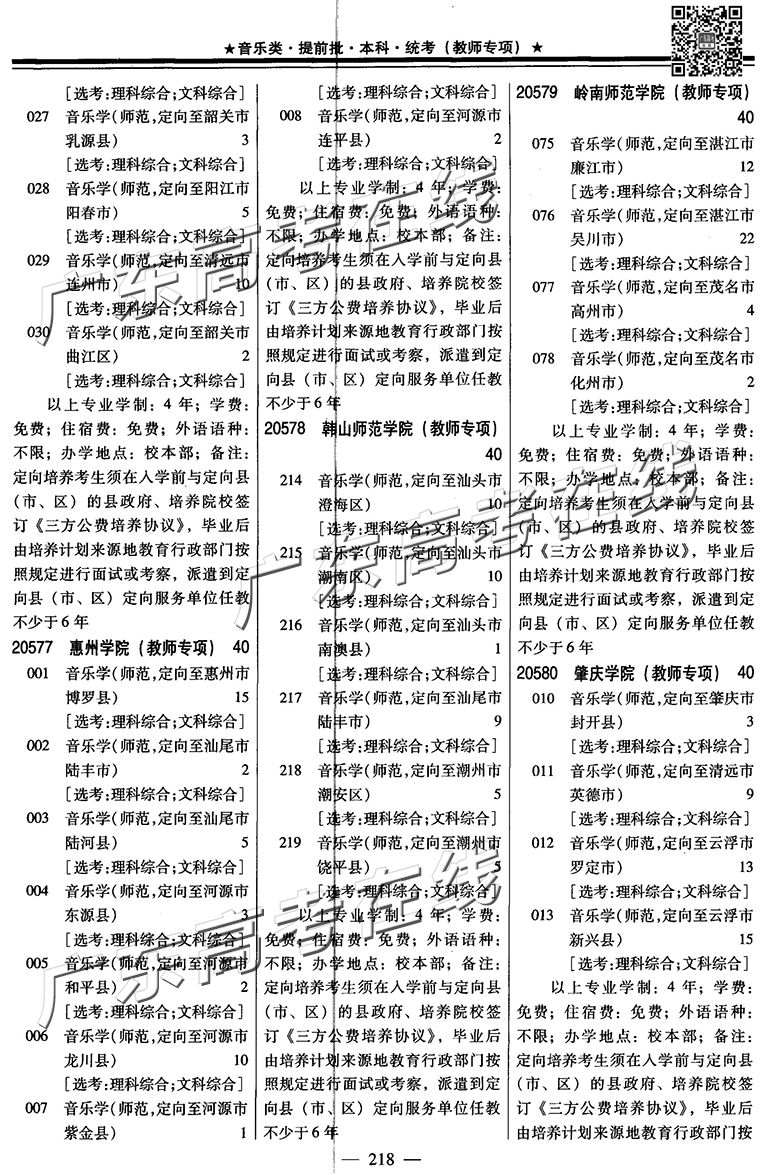 ★音乐类·提前批·本科·统考(教师专项)★
[选考:理科综合;文科综合]
027 音乐学(师范,定向至韶关市
乳源县) 3
[选考:理科综合;文科综合]
028 音乐学(师范,定向至阳江市
阳春市) 5
[选考:理科综合;文科综合]
029 音乐学(师范,定向至清远市
连州市) 10
[选考:理科综合;文科综合]
030 音乐学(师范,定向至韶关市
曲江区) 2
[选考:理科综合;文科综合]
以上专业学制:4年;学费:
免费;住宿费:免费;外语语种:
不限;办学地点:校本部;备注:
定向培养考生须在入学前与定向县
(市、区)的县政府、培养院校签
订《三方公费培养协议》,毕业后
由培养计划来源地教育行政部门按
照规定进行面试或考察,派遣到定
向县(市、区)定向服务单位任教
不少于6年
20577 惠州学院(教师专项) 40
001 音乐学(师范,定向至惠州市
博罗县) 15
[选考:理科综合;文科综合]
002 音乐学(师范,定向至汕尾市
陆丰市) 2
[选考:理科综合;文科综合]
003 音乐学(师范,定向至汕尾市
陆河县) 5
[选考:理科综合;文科综合]
004 音乐学(师范,定向至河源市
东源县) 3
[选考:理科综合;文科综合]
005 音乐学(师范,定向至河源市
和平县) 2
[选考:理科综合;文科综合]
006 音乐学(师范,定向至河源市
龙川县) 10
[选考:理科综合;文科综合]
007 音乐学(师范,定向至河源市
紫金县) 1
[选考:理科综合;文科综合]
008 音乐学(师范,定向至河源市
连平县) 2
[选考:理科综合;文科综合]
以上专业学制:4年;学费:
免费;住宿费:免费;外语语种:
不限;办学地点:校本部;备注:
定向培养考生须在入学前与定向县
(市、区)的县政府、培养院校签
订《三方公费培养协议》,毕业后
由培养计划来源地教育行政部门按
照规定进行面试或考察,派遣到定
向县(市、区)定向服务单位任教
不少于6年
20578 韩山师范学院(教师专项)
40
214 音乐学(师范,定向至汕头市
澄海区) 10
[选考:理科综合;文科综合]
215 音乐学(师范,定向至汕头市
潮南区) 10
[选考:理科综合;文科综合]
216 音乐学(师范,定向至汕头市
南澳县) 1
[选考:理科综合;文科综合]
217 音乐学(师范,定向至汕尾市
陆丰市) 9
[选考:理科综合;文科综合]
218 音乐学(师范,定向至潮州市
潮安区) 5
[选考:理科综合;文科综合]
219 音乐学(师范,定向至潮州市
饶平县) 5
[选考:理科综合;文科综合]
以上专业学制:4年;学费:
免费;住宿费:免费;外语语种:
不限;办学地点:校本部;备注:
定向培养考生须在入学前与定向县
(市、区)的县政府、培养院校签
订《三方公费培养协议》,毕业后
由培养计划来源地教育行政部门按
照规定进行面试或考察,派遣到定
向县(市、区)定向服务单位任教
不少于6年
20579 岭南师范学院(教师专项)
40
075 音乐学(师范,定向至湛江市
廉江市) 12
[选考:理科综合;文科综合]
076 音乐学(师范,定向至湛江市
吴川市) 22
[选考:理科综合;文科综合]
077 音乐学(师范,定向至茂名市
高州市) 4
[选考:理科综合;文科综合]
078 音乐学(师范,定向至茂名市
化州市) 2
[选考:理科综合;文科综合]
以上专业学制:4年;学费:
免费;住宿费:免费;外语语种:
不限;办学地点:校本部;备注:
定向培养考生须在入学前与定向县
(市、区)的县政府、培养院校签
订《三方公费培养协议》,毕业后
由培养计划来源地教育行政部门按
照规定进行面试或考察,派遣到定
向县(市、区)定向服务单位任教
不少于6年
20580 肇庆学院(教师专项) 40
010 音乐学(师范,定向至肇庆市
封开县) 3
[选考:理科综合;文科综合]
011 音乐学(师范,定向至清远市
英德市) 9
[选考:理科综合;文科综合]
012 音乐学(师范,定向至云浮市
罗定市) 13
[选考:理科综合;文科综合]
013 音乐学(师范,定向至云浮市
新兴县) 15
[选考:理科综合;文科综合]
以上专业学制:4年;学费:
免费;住宿费:免费;外语语种:
不限;办学地点:校本部;备注:
定向培养考生须在入学前与定向县
(市、区)的县政府、培养院校签
订《三方公费培养协议》,毕业后
由培养计划来源地教育行政部门按
— 218 —
广东高考在线
广东高考在线
广东高考在线